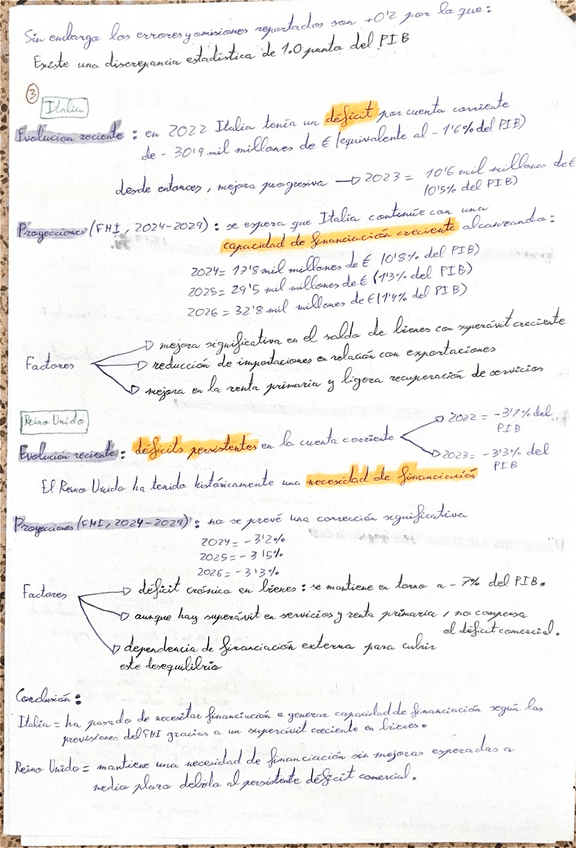 Sin embargo los errores y omisiones reportados son +0'2 por lo que:
Existe una discrepancia estadística de 1.0 punto del PIB
③
Italia
Evolución reciente: en 2022 Italia tenía un déficit por cuenta corriente
de -30'9 mil millones de € (equivalente al -1'6% del PIB)
desde entonces, mejora progresiva → 2023 = 10'6 mil millones de €
(0'5% del PIB)
Proyecciones (FMI, 2024-2029): se espera que Italia continúe con una
capacidad de financiación creciente alcanzando:
2024 = 17'8 mil millones de € (0'8% del PIB)
2025 = 29'5 mil millones de € (1'3% del PIB)
2026 = 32'8 mil millones de € (1'4% del PIB)
Factores
mejora significativa en el saldo de bienes con superávit creciente
reducción de importaciones en relación con exportaciones
mejora en la renta primaria y ligera recuperación de servicios
Reino Unido
Evolución reciente: déficits persistentes en la cuenta corriente
2022 = -3'1% del
PIB
2023 = -3'3% del
PIB
El Reino Unido ha tenido históricamente una necesidad de financiación
Proyecciones (FMI, 2024-2029): no se prevé una corrección significativa
2024 = -3'2%
2025 = -3'5%
2026 = -3'3%
Factores
déficit crónico en bienes: se mantiene en torno a -7% del PIB.
aunque hay superávit en servicios y renta primaria, no compensa
el déficit comercial.
dependencia de financiación externa para cubrir
este desequilibrio
Conclusión:
Italia = ha pasado de necesitar financiación a generar capacidad de financiación según las
previsiones del FMI gracias a un superávit creciente en bienes.
Reino Unido = mantiene una necesidad de financiación sin mejoras esperadas a
medio plazo debido al persistente déficit comercial.